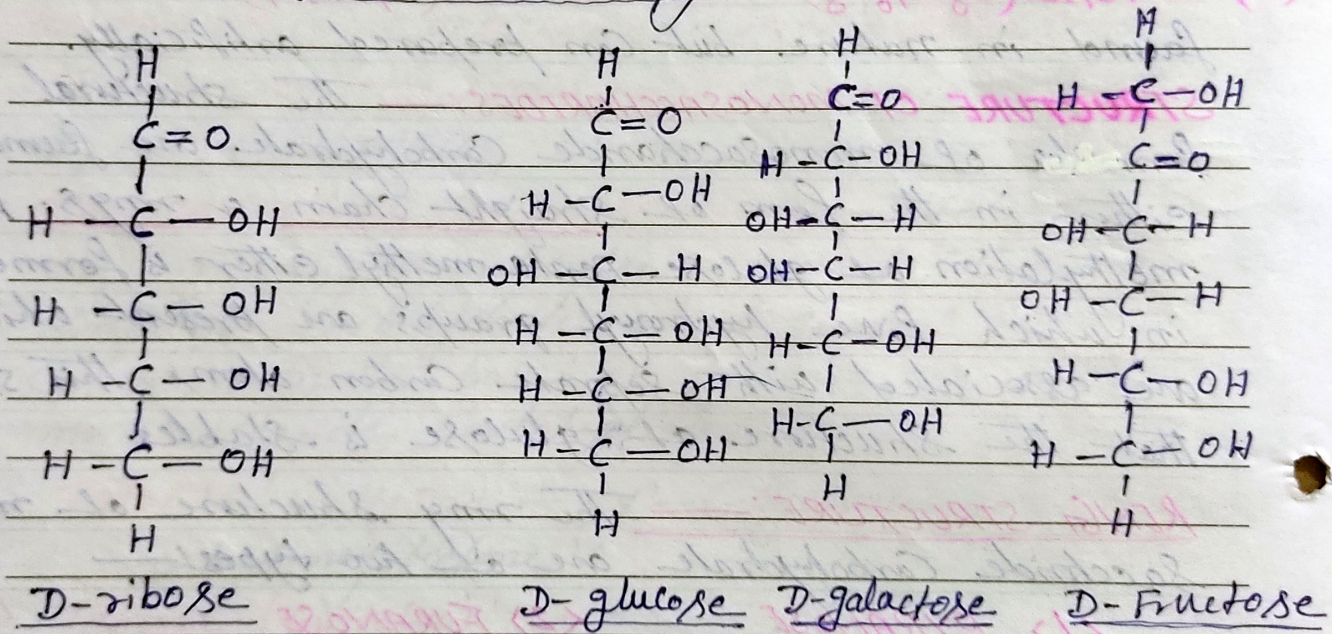 H
C=O.
H-C-OH
H-C-OH
H-C-OH
H-C-OH
H
D-ribose
H
C=O
H-C-OH
OH-C-H
H-C-OH
H-C-OH
H-C-OH
H
D-glucose
H
C=O
H-C-OH
OH-C-H
OH-C-H
H-C-OH
H-C-OH
H
D-galactose
H
H-C-OH
C=O
OH-C-H
OH-C-H
H-C-OH
H-C-OH
H
D-Fructose